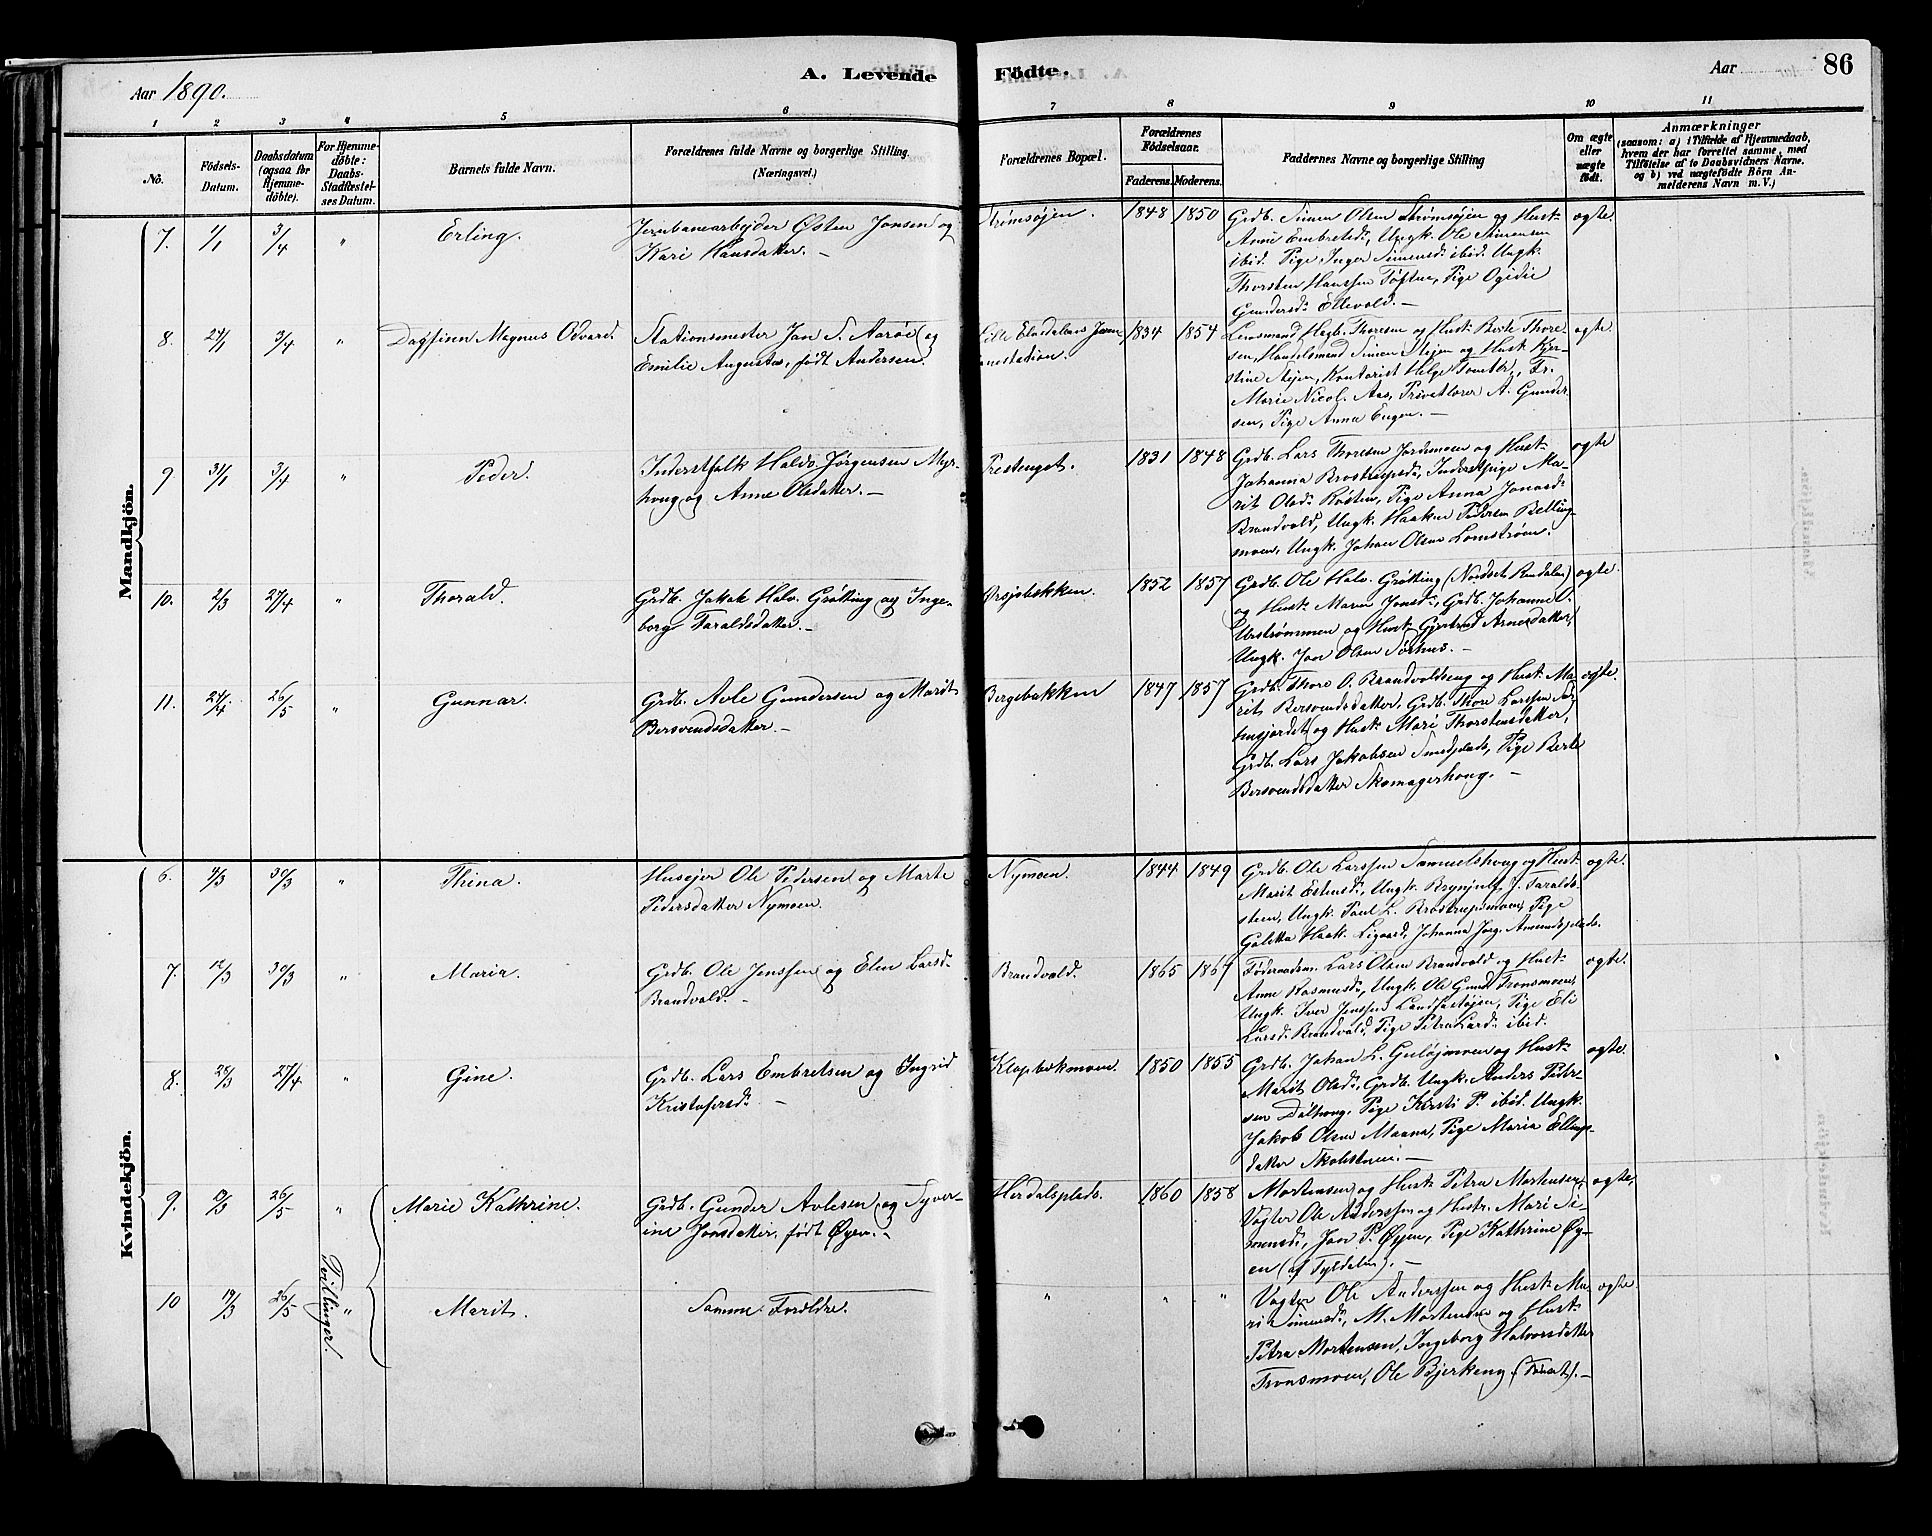 Aar 1890.
A. Levende Födte.
Aar 86
1 2 3 4 5 6 7 8 9 10 11
No.
Födsels-Datum.
Daabsdatum (ogsaa for Hjemmedøbte).
For Hjemmedøbte: Daabs-Stadfæstelses Datum.
Barnets fulde Navn.
Forældrenes fulde Navne og borgerlige Stilling (Næringsvei.)
Forældrenes Bopæl.
Forældrenes Födselsaar.
Faderens. Moderens.
Faddernes Navne og borgerlige Stilling
Om ægte eller uægte født.
Anmærkninger
(saasom: a) i Tilfælde af Hjemmedaab, hvem der har forrettet samme, med Tilföielse af to Daabsvidners Navne. og b) ved uægtefödte Börn Anmelderens Navn m. V.)
Mandkjön.
7. 1/1 3/4 " Erling. Jernbanearbejder Østen Jonsen og
Kari Hansdatter. –
Strømsøjen. 1848 1850 Grdb. Simen Olsen Strømsøjen og Hust.
Anne Embretsd., Ungk. Ole Simensen
ibid. Pige Inger Simensd. ibid. Ungk.
Thorsten Hanssen Tøften, Pige
Gundersd. Ellevold. –
ægte.
8. 24/1 3/4 " Dagfinn Magnus Odvard. Stationsmester Jon S. Aarøe og
Emilie Augusta, født Andersen.
Lille Elvedalens Jern-
banestation. 1834 1854 Lensmand Hagb. Thoresen og Hust. Berte Thore-
sen, Handelsmand Simen Stejen og Hust. Kjer-
stine Stejen, Kontorist Helge Tomter, Fr.
Marie Nicol. Aas, Privatlærer A. Gunder-
sen, Pige Anna Engen. –
ægte
9 31/1 3/4 " Peder. Inderstfolk Halvo Jørgensen Myr-
houg og Anne Olsdatter. –
Prestenget. 1831 1848 Grdb. Lars Thoresen Jordemoen og Hust.
Johanna Brostrupsd., Inderstpige Ma-
rit Olsd. Røsten, Pige Anna Jonasd.
Brandvold, Ungk. Haaken Pedersen Belling-
moen, Ungk. Johan Olsen Lomstrøen.
ægte
10. 2/3 27/4 " Thorald. Grdb. Jakob Halv. Grøtting og Inge-
borg Taraldsdatter. –
Ørsjøbekken. 1852 1857 Grdb. Ole Halv. Grøtting (Nordset Rendalen)
og Hust. Maren Jonsd., Grdb. Johannes
Urstrømmen og Hust. Gjertrud Arnesdatter,
Ungk. Jon Olsen Sørhus. –
ægte.
11. 24/4 26/5 " Gunnar. Grdb. Avle Gundersen og Marit
Bersvendsdatter. –
Bergebakken 1847 1857 Grdb. Thore O. Brandvoldseng og Hust. Ma-
rit Bersvendsdatter, Grdb. Thore Larssen
og Hust. Mari Thorstensdatter,
Grdb. Lars Jakobsen Smedplads, Pige Berte
Bersvendsdatter Skomagerhoug. –
ægte.
Kvindekjön.
6. 9/3 30/3 " Thina. Husejer Ole Pedersen og Marte
Pedersdatter Nymoen.
Nymoen. 1844 1849 Grdb. Ole Larssen Samuelshoug og Hust.
Marit Estensd., Ungk. Brynjulf J. Taralds-
steen, Ungk. Paul L. Brostrupsmoen, Pige
Galetta Haak. Ligaard, Johanna Jørg. Amundsplads.
ægte.
7. 12/3 30/3 " Maria. Grdb. Ole Jenssen og Elen Larsd.
Brandvold. –
Brandvold. 1865 1867 Føderaadsm. Lars Olsen Brandvold og Hust.
Anne Rasmusd., Ungk. Ole Gund. Tronsmoen,
Ungk. Iver Jenssen Landfastøjen, Pige Eli
Larsd. Brandvold, Pige Petra Larsd. ibid.
ægte.
8. 25/3 27/4 " Gine. Grdb. Lars Embretsen og Ingrid
Kristofersd. –
Klopbekmoen. 1850 1855 Grdb. Johan L. Guløjmoen og Hust.
Marit Olsd., Grdb. Ungk. Anders Peter-
sen Dølhoug, Pige Kirsti P. ibid. Ungk.
Jakob Olsen Maana, Pige Maria Ellings-
datter –
ægte
9. 19/3 26/5 " Marie Kathrine. Grdb. Gunder Avlesen og Syver-
ine Jonsdatter, født Øyen. –
Herdalsplads. 1860 1858 Mortensen og Hust. Petra Mortensen,
Vogter Ole Anderssen og Hustr. Mari Si-
mensd., Jon P. Øyen, Pige Kathrine Øy-
en (af Tyldalen). –
ægte.
Tvillinger.
10 19/3 26/5 " Marit. Samme Forældre.
" " " Vogter Ole Anderssen og Hust. Ma-
ri Simensd., M. Mortensen og Hust.
Petra Mortensen, Ingeborg Halvorsdatter
Tronsmoen, Ole Bjerkeng –
ægte.